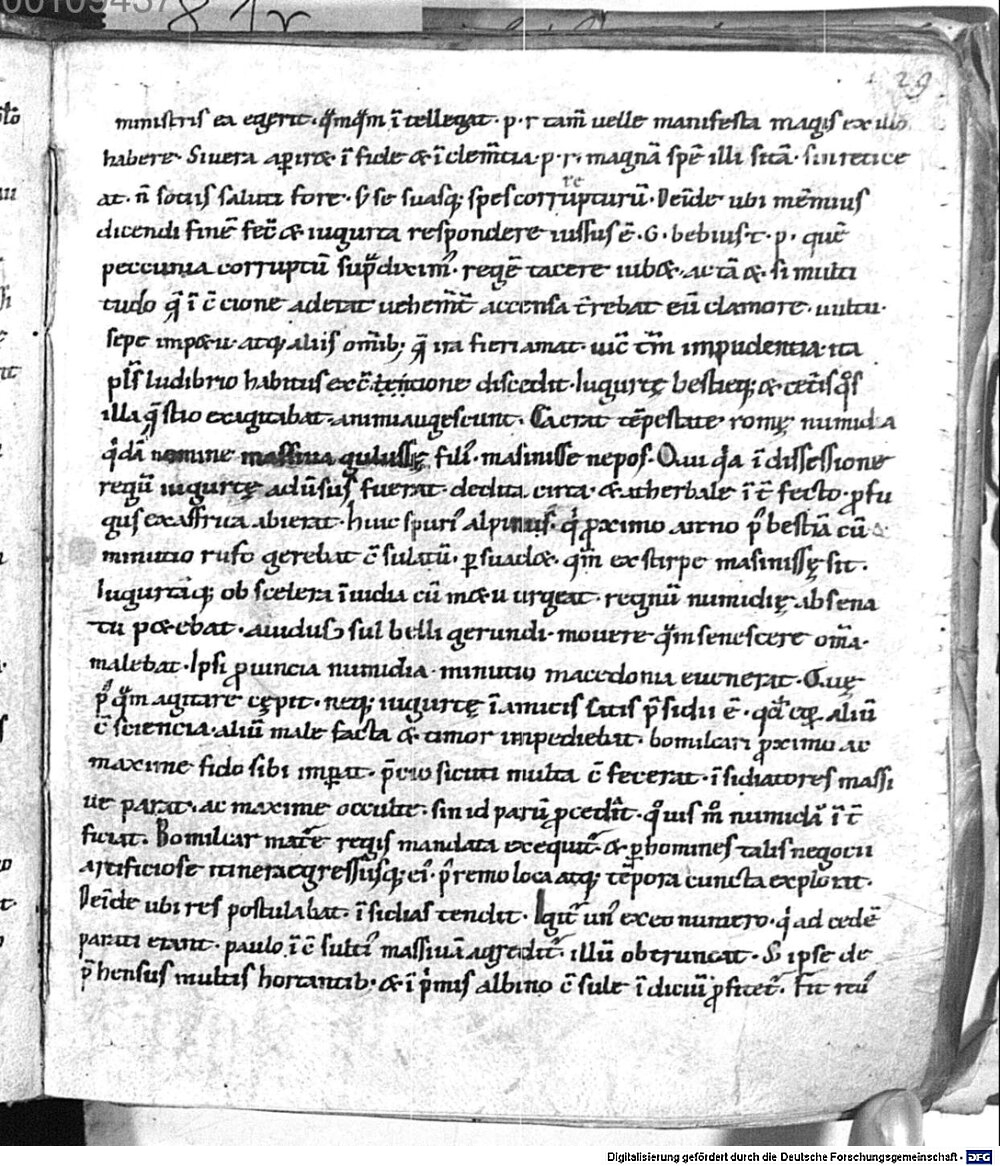 00109437
81r
29
ministris ea egerit. q̄mq̄m ītellegat. p. r tam̄ uelle manifesta magis ex illo
habere. Siuera apiræ ī fide & ī clem̄tia. p. r. magnā spē illi sitā. sin retice
at. n̄ sociis saluti fore. S; se suasq; spes corrupturū. Deīde ubi mēmius
dicendi finē fec̄ & iugurta respondere iussus ē. G. bebius t. p. quē
peccunia corruptū sup̄ dixim̄. regē tacere iubæ. ac tā & si multi
tudo q̄ ī c̄cione aderat uehem̄t accensa t̄rebat eū clamore. uultu.
sepe impetu. atq; aliis om̄ib; q̄ ira fieri amat. uic̄ tm̄ impudentia. ita
pl̄s ludibrio habitus ex c̄tentione discedit. Iugurtę bestieq; & cet̄is q̄s
illa q̄stio exagitabat. animi augescunt. Erat tēpestate romę numida
q̇dā nomine massiua gulussę fili᾽. masinisse nepos. Qui q̇a ī dissessione
regū iugurtę aduersus fuerat. dedita cirta. & atherbale īt̄fecto. p̱fu
gus ex affrica abierat. huic spuri᾽ alpinus. q̇ p̱ximo anno p᾽ bestiā cū
minutio rufo gerebat c̄sulatū. p̱suadæ. qm̄ ex stirpe masinissę sit.
Iugurtāq; ob scelera īuidia cū metu urgeat. regnū numidię ab sena
tu petebat. auidus c̄sul belli gerundi. mouere q̄m senescere om̄ia.
malebat. Ipsi p̱uincia numidia. minutio macedonia euenerat. Quę
p᾽q̄m agitare cępit. neq; iugurtę ī amicis satis p̄sidii ē. qd̄ eoꝝ aliū
c̄scientia. aliū male facta & timor impediebat. bomilcari p̱ximo ac
maxime fido sibi imp̱at. p̄cio sicuti multa c̄fecerat. īsidiatores massi
ue parat. ac maxime occulte. sin id parū p̱cedit. q̇uis m̊ numidā īt̄
ficiat. Bomilcar mature regis mandata exequit̄. & p̱ homines talis negocii
artificiose itinera egressusq; ei᾽. p᾽remo loca atq; tēpora cuncta explorat.
Deīde ubi res postulabat. īsidias tendit. Igit̄ un᾽ ex eo numero. q̇ ad cedē
parati erant. paulo īc̄sulti᾽ massiuā agredit̄. illū obtruncat. S; ipse de
p̄hensus multis hortantib; & ī ṗmis albino c̄sule īdiciū p̱fitet̄. Fit reu᾽
Digitalisierung gefördert durch die Deutsche Forschungsgemeinschaft - DFG